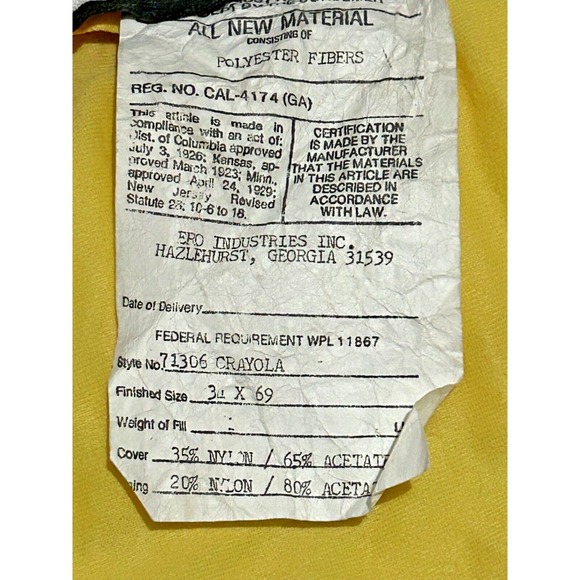 ALL NEW MATERIAL
CONSISTING OF
POLYESTER FIBERS
REG. NO. CAL-4174 (GA)
This article is made in
compliance with an act of:
Dist. of Columbia approved
July 3, 1926; Kansas, ap-
proved March 1923; Minn.
approved April 24, 1929;
New Jersey Revised
Statute 26: 10-6 to 18.
CERTIFICATION
IS MADE BY THE
MANUFACTURER
THAT THE MATERIALS
IN THIS ARTICLE ARE
DESCRIBED IN
ACCORDANCE
WITH LAW.
ERO INDUSTRIES INC.
HAZLEHURST, GEORGIA 31539
Date of Delivery
FEDERAL REQUIREMENT WPL 11867
Style No. 71306 CRAYOLA
Finished Size X 69
Weight of Fill
Cover 35% NYLON / 65% ACETAT
20% NYLON / 80% ACETA